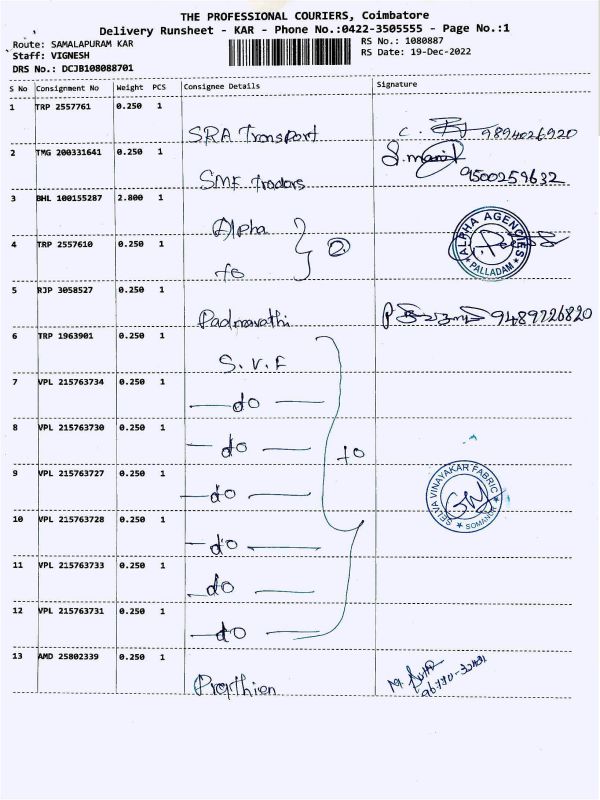 THE PROFESSIONAL COURIERS, Coimbatore
Delivery Runsheet - KAR - Phone No.:0422-3505555 - Page No.:1
Route: SAMALAPURAM KAR
RS No.: 1080887
Staff: VIGNESH
RS Date: 19-Dec-2022
DRS No.: DCJB108088701
S No Consignment No Weight PCS Consignee Details Signature
1 TRP 2557761 0.250 1
SRA Transport C. 9894026920
2 TMG 200331641 0.250 1
S.manik
SMF Tradors 9500259632
3 BHL 100155287 2.800 1
Alpha
ALPHA AGENCIES
PALLADAM
4 TRP 2557610 0.250 1
to
5 RJP 3058527 0.250 1
Padmavathi 9489726820
6 TRP 1963901 0.250 1
S.V.F
7 VPL 215763734 0.250 1
do
8 VPL 215763730 0.250 1
do
to
9 VPL 215763727 0.250 1
do
SELVA VINAYAKAR FABRIC
SOMANUR
10 VPL 215763728 0.250 1
do
11 VPL 215763733 0.250 1
do
12 VPL 215763731 0.250 1
do
13 AMD 25802339 0.250 1